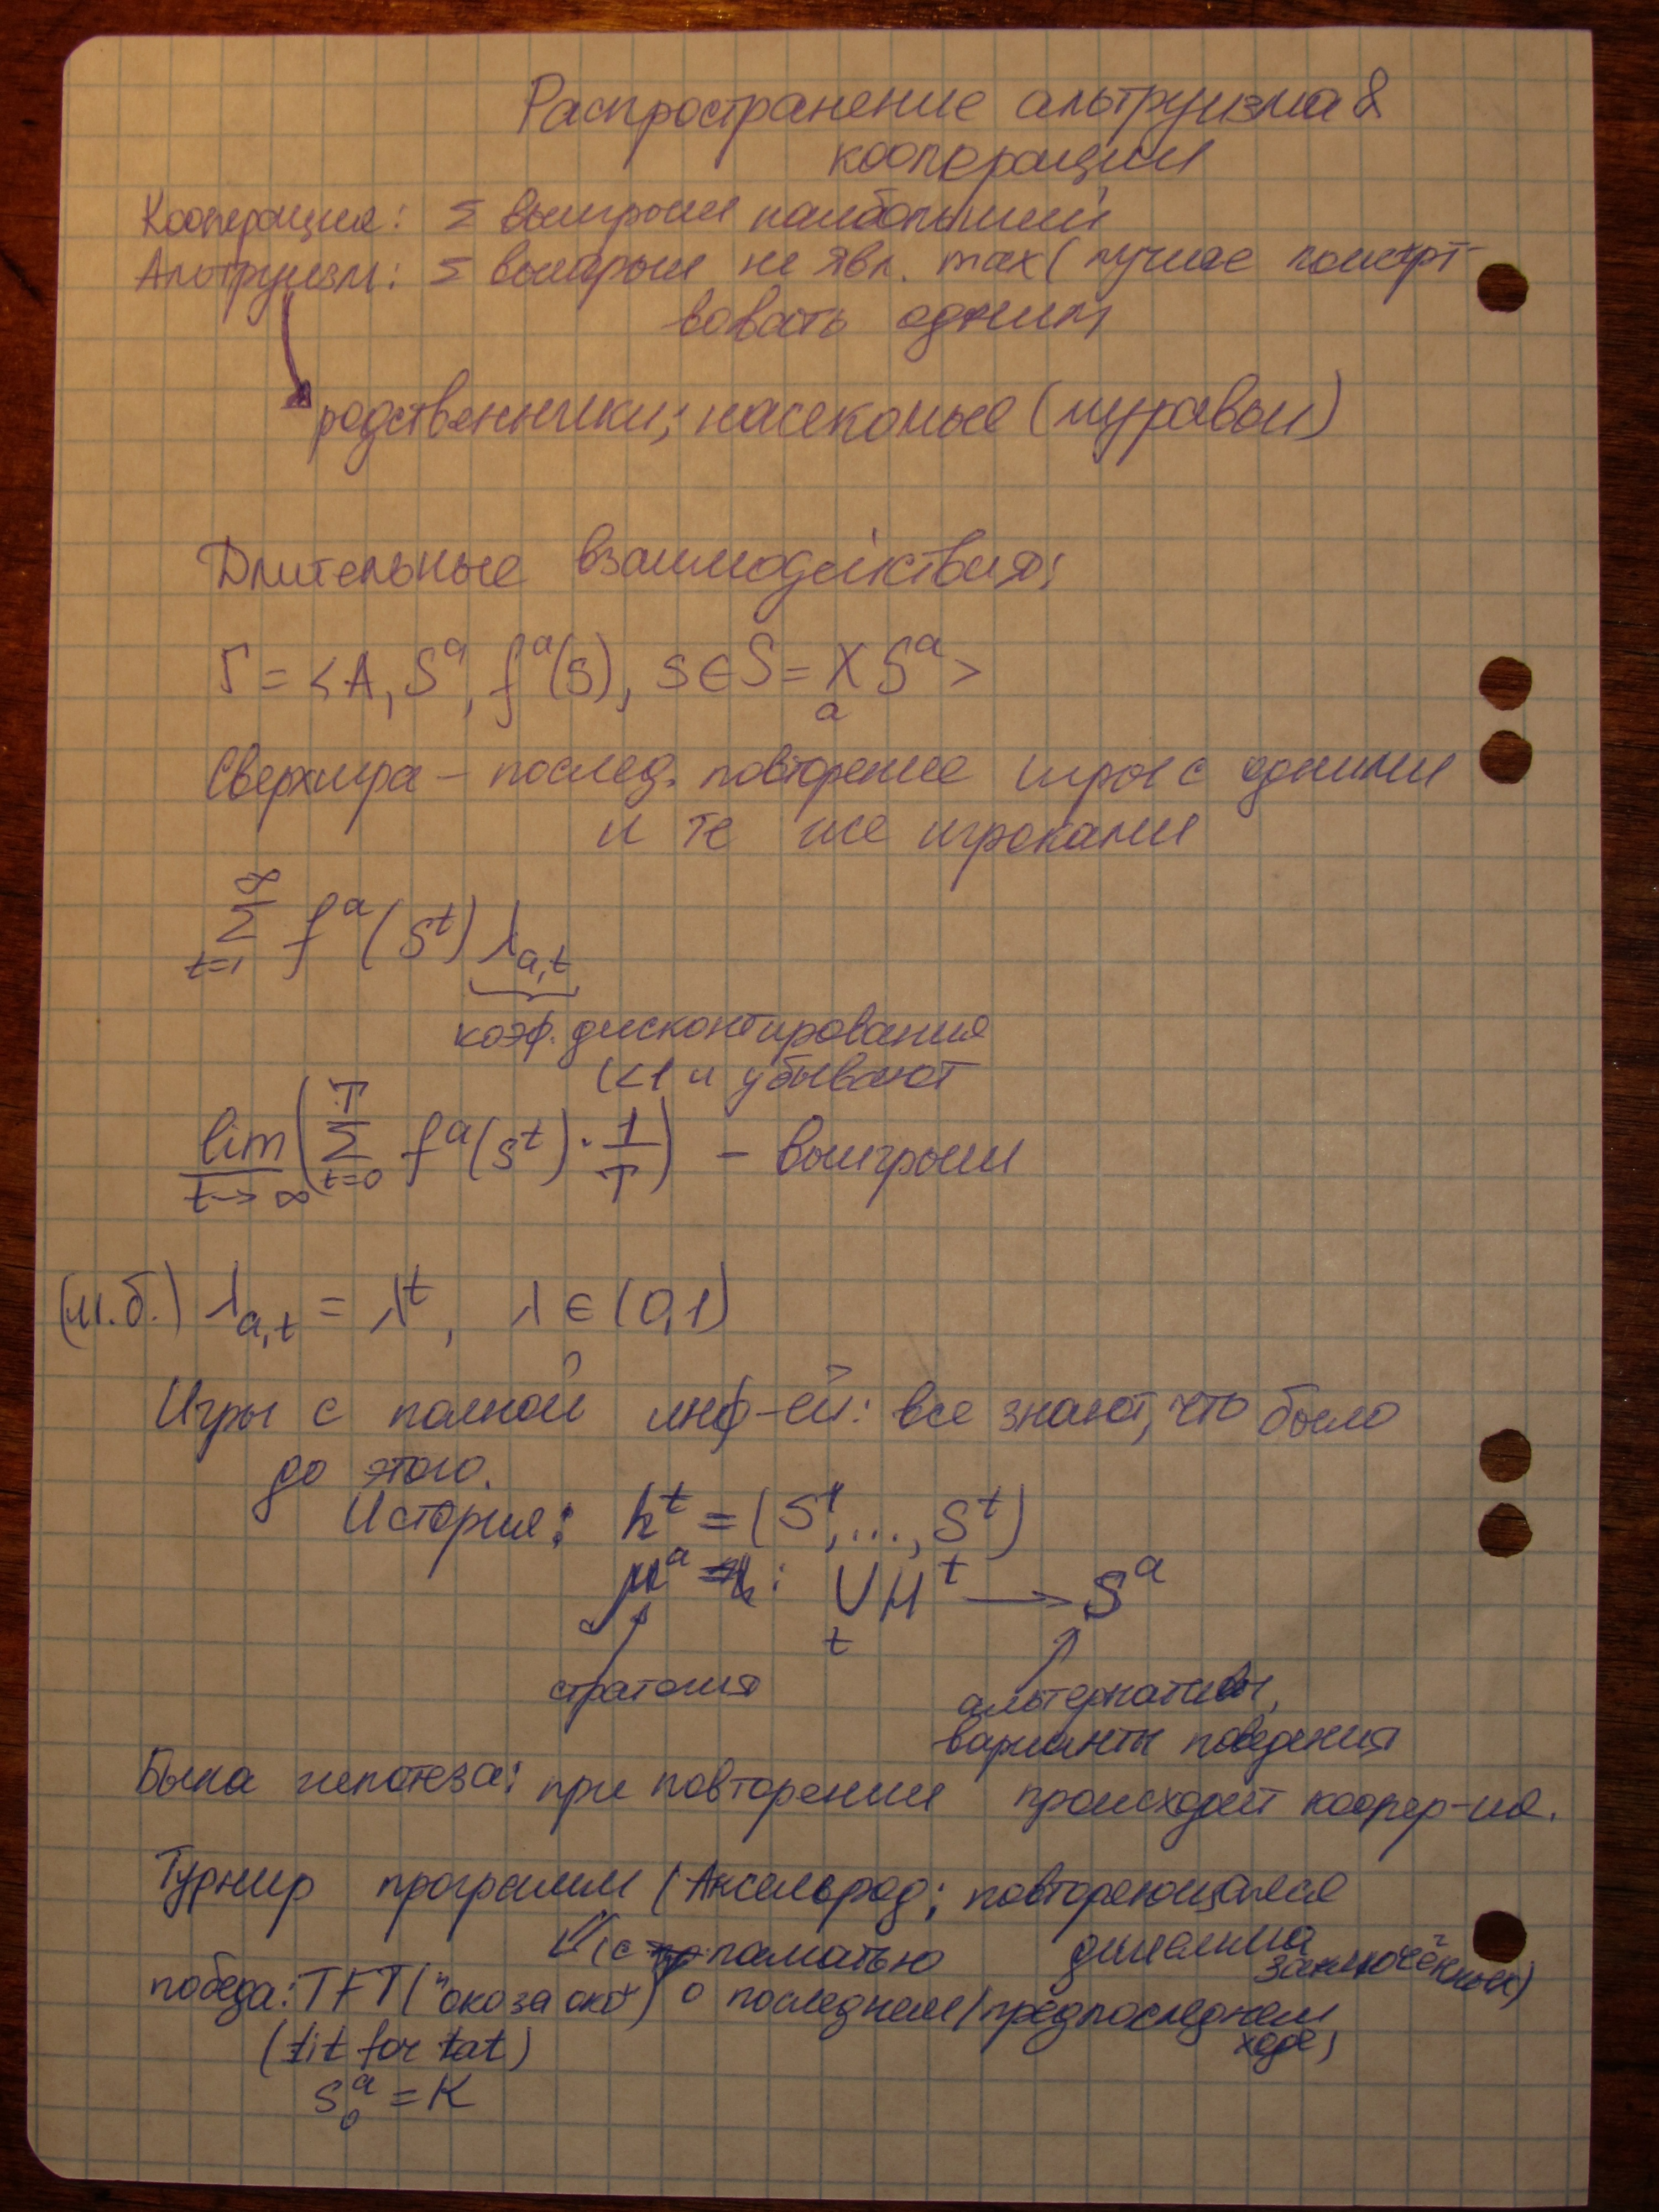 Распространение альтруизма &
кооперации
Кооперация: Σ выигрыш наибольший
Альтруизм: Σ выигрыш не явл. max (лучше пожерт-
вовать одним
родственники; насекомые (муравьи)
Длительные взаимодействия:
Γ = <A, S^a, f^a(s), s∈S = X_a S^a>
Сверхигра – послед. повторение игры с одними
и те же игроками
∑_{t=1}^{∞} f^a(s^t) λ_{a,t}
коэф. дисконтирования
(<1 и убывают
lim_{t→∞} (∑_{t=0}^{T} f^a(s^t) · 1/T) – выигрыш
(м.б.) λ_{a,t} = λ^t, λ ∈ (0,1)
Игры с полной инф-ей: все знают, что было
до этого.
История: h^t = (s^1, ..., s^t)
μ^a : ∪_t H^t → S^a
стратегия
альтернативы,
варианты поведения
Была гипотеза: при повторении происходит коопер-ия.
Турнир программ (Аксельрод; повторяющаяся
дилемма
заключённых)
(с памятью
победа: TFT ("око за око") о последнем/предпоследнем
ходе)
(tit for tat)
s_0^a = K